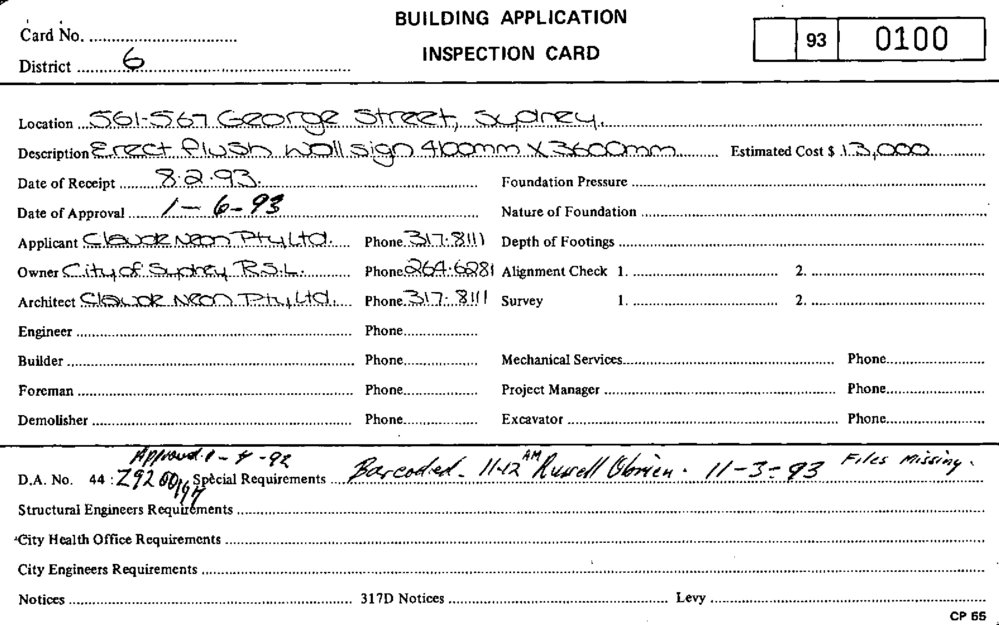 BUILDING APPLICATION
Card No.
INSPECTION CARD
93 0100
District 6
Location 561-567 George Street, Sydney.
Description Erect flush wall sign 4100mm x 3600mm Estimated Cost $ 13,000
Date of Receipt 8.2.93. Foundation Pressure
Date of Approval 1-6-93 Nature of Foundation
Applicant Claude Neon Pty Ltd. Phone 317.8111 Depth of Footings
Owner City of Sydney R.S.L. Phone 264.6281 Alignment Check 1. 2.
Architect Claude Neon Pty Ltd. Phone 317.8111 Survey 1. 2.
Engineer Phone
Builder Phone Mechanical Services Phone
Foreman Phone Project Manager Phone
Demolisher Phone Excavator Phone
Approved
D.A. No. 44: Z92 00 Special Requirements Barcoded - 11-12 AM Russell Obrien. 11-3-93 Files Missing.
Structural Engineers Requirements
City Health Office Requirements
City Engineers Requirements
Notices 317D Notices Levy
CP 55